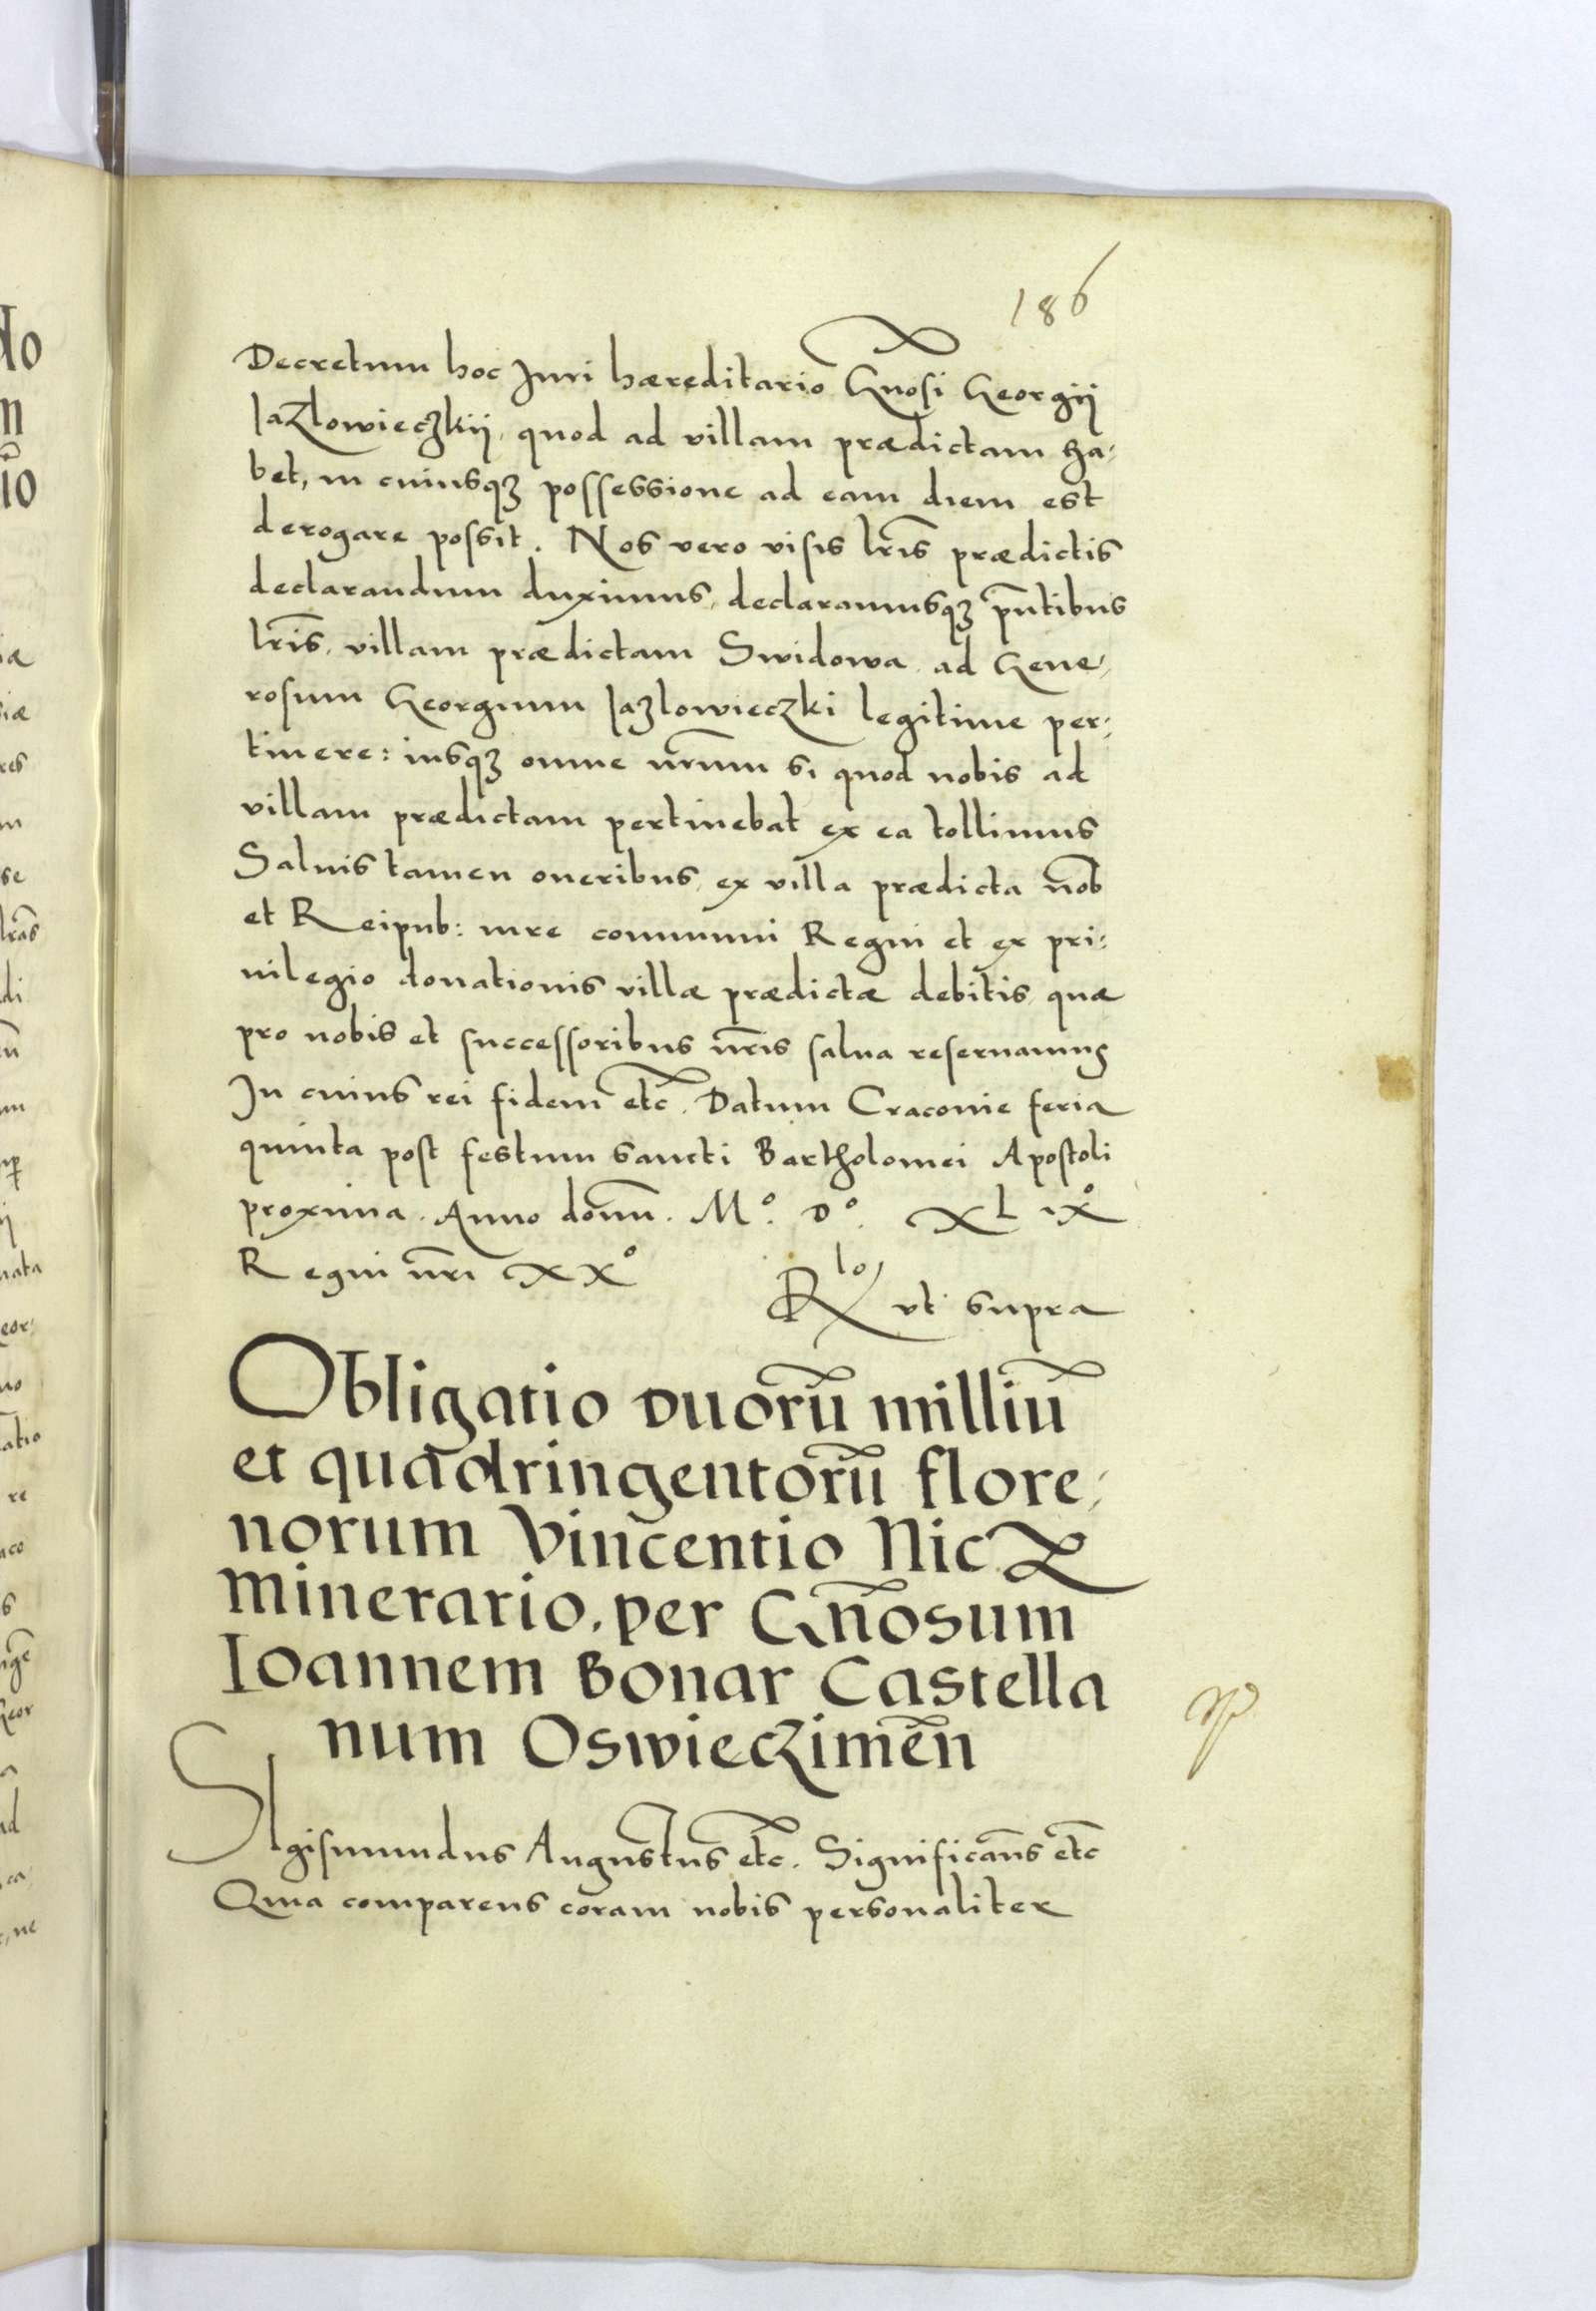 186
Decretum hoc Juri hæreditario Gnosi Georgij
Jazlowieczkij, quod ad villam prædictam ha:
bet, in cuiusqꝫ possessione ad eam diem est
derogare possit. Nos vero visis lr̃is prædictis
declarandum duximus, declaramusqꝫ pñtibus
lr̃is, villam prædictam Swidowa ad Gene:
rosum Georgium Jazlowieczki legitime per:
tinere: iusqꝫ omne nr̃um si quod nobis ad
villam prædictam pertinebat ex ea tollimus
Saluis tamen oneribus, ex villa prædicta nob̃
et Reipub: iure communi Regni et ex pri:
uilegio donationis villæ prædictæ debitis, quæ
pro nobis et successoribus nr̃is salua reseruamus
In cuius rei fidem etc̃. Datum Cracouie feria
quinta post festum sancti Bartholomei Apostoli
proxima. Anno domĩ. M°. D°. XL ix°
Regni nr̃i XX°
Rlo vt supra
Obligatio duorũ milliũ
et quadringentorũ flore:
norum Vincentio Nicz
minerario, per Gñosum
Ioannem Bonar Castella
num Oswieczimeñ
SIgismundus Augustus etc̃. Significañs etc̃
Quia comparens coram nobis personaliter